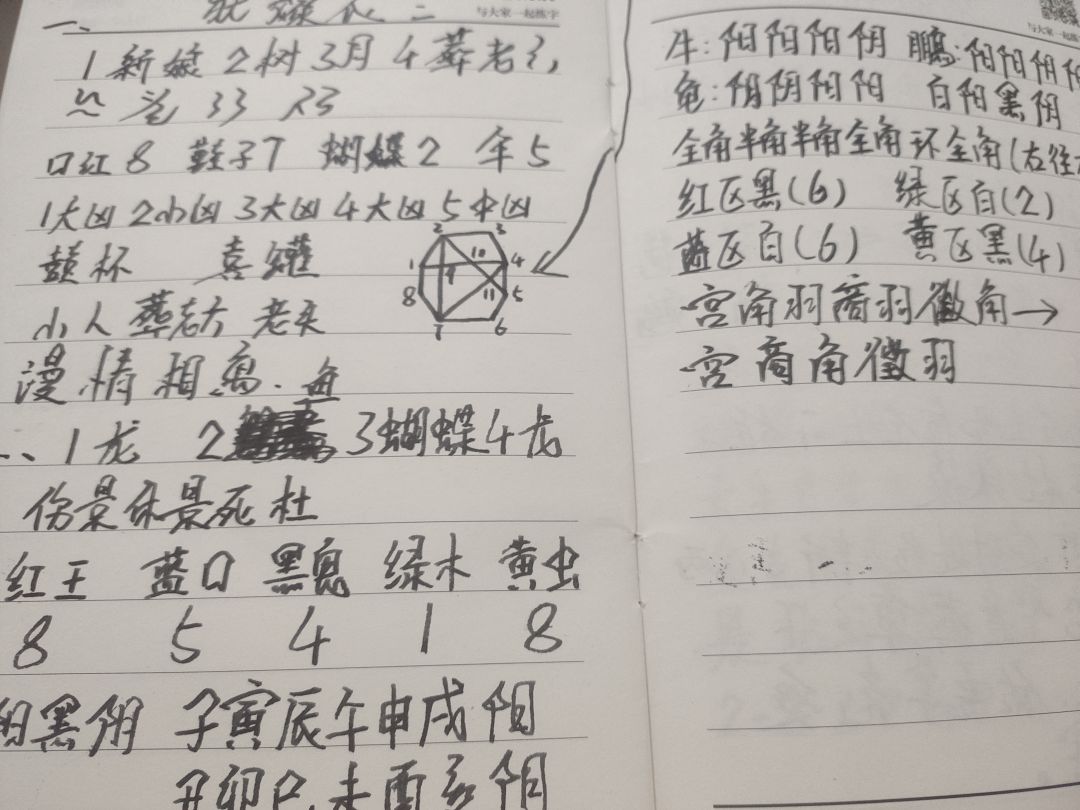 一、
与大家一起练字
1新娘 2树 3月 4葬老了,
口红8 鞋子7 蝴蝶2 年5
1大凶 2小凶 3大凶 4大凶 5中凶
2 3
1 10 4
9
8 11 5
7 6
小人 葬志大 老头
漫情相离.
1龙 2 3蝴蝶 4龙
伤景休景死杜
红王 蓝口 黑鬼 绿木 黄虫
8 5 4 1 8
阳黑阴 子寅辰午申戌阳
丑卯巳未酉亥阴
与大家一起练字
牛:阳阳阳阴 鹏:阳阳阴阳
龟:阴阴阳阳 白阳黑阴
全角半角半角全角环全角(右往左
红区黑(6) 绿区白(2)
蓝区白(6) 黄区黑(4)
宫角羽商羽徵角→
宫商角徵羽